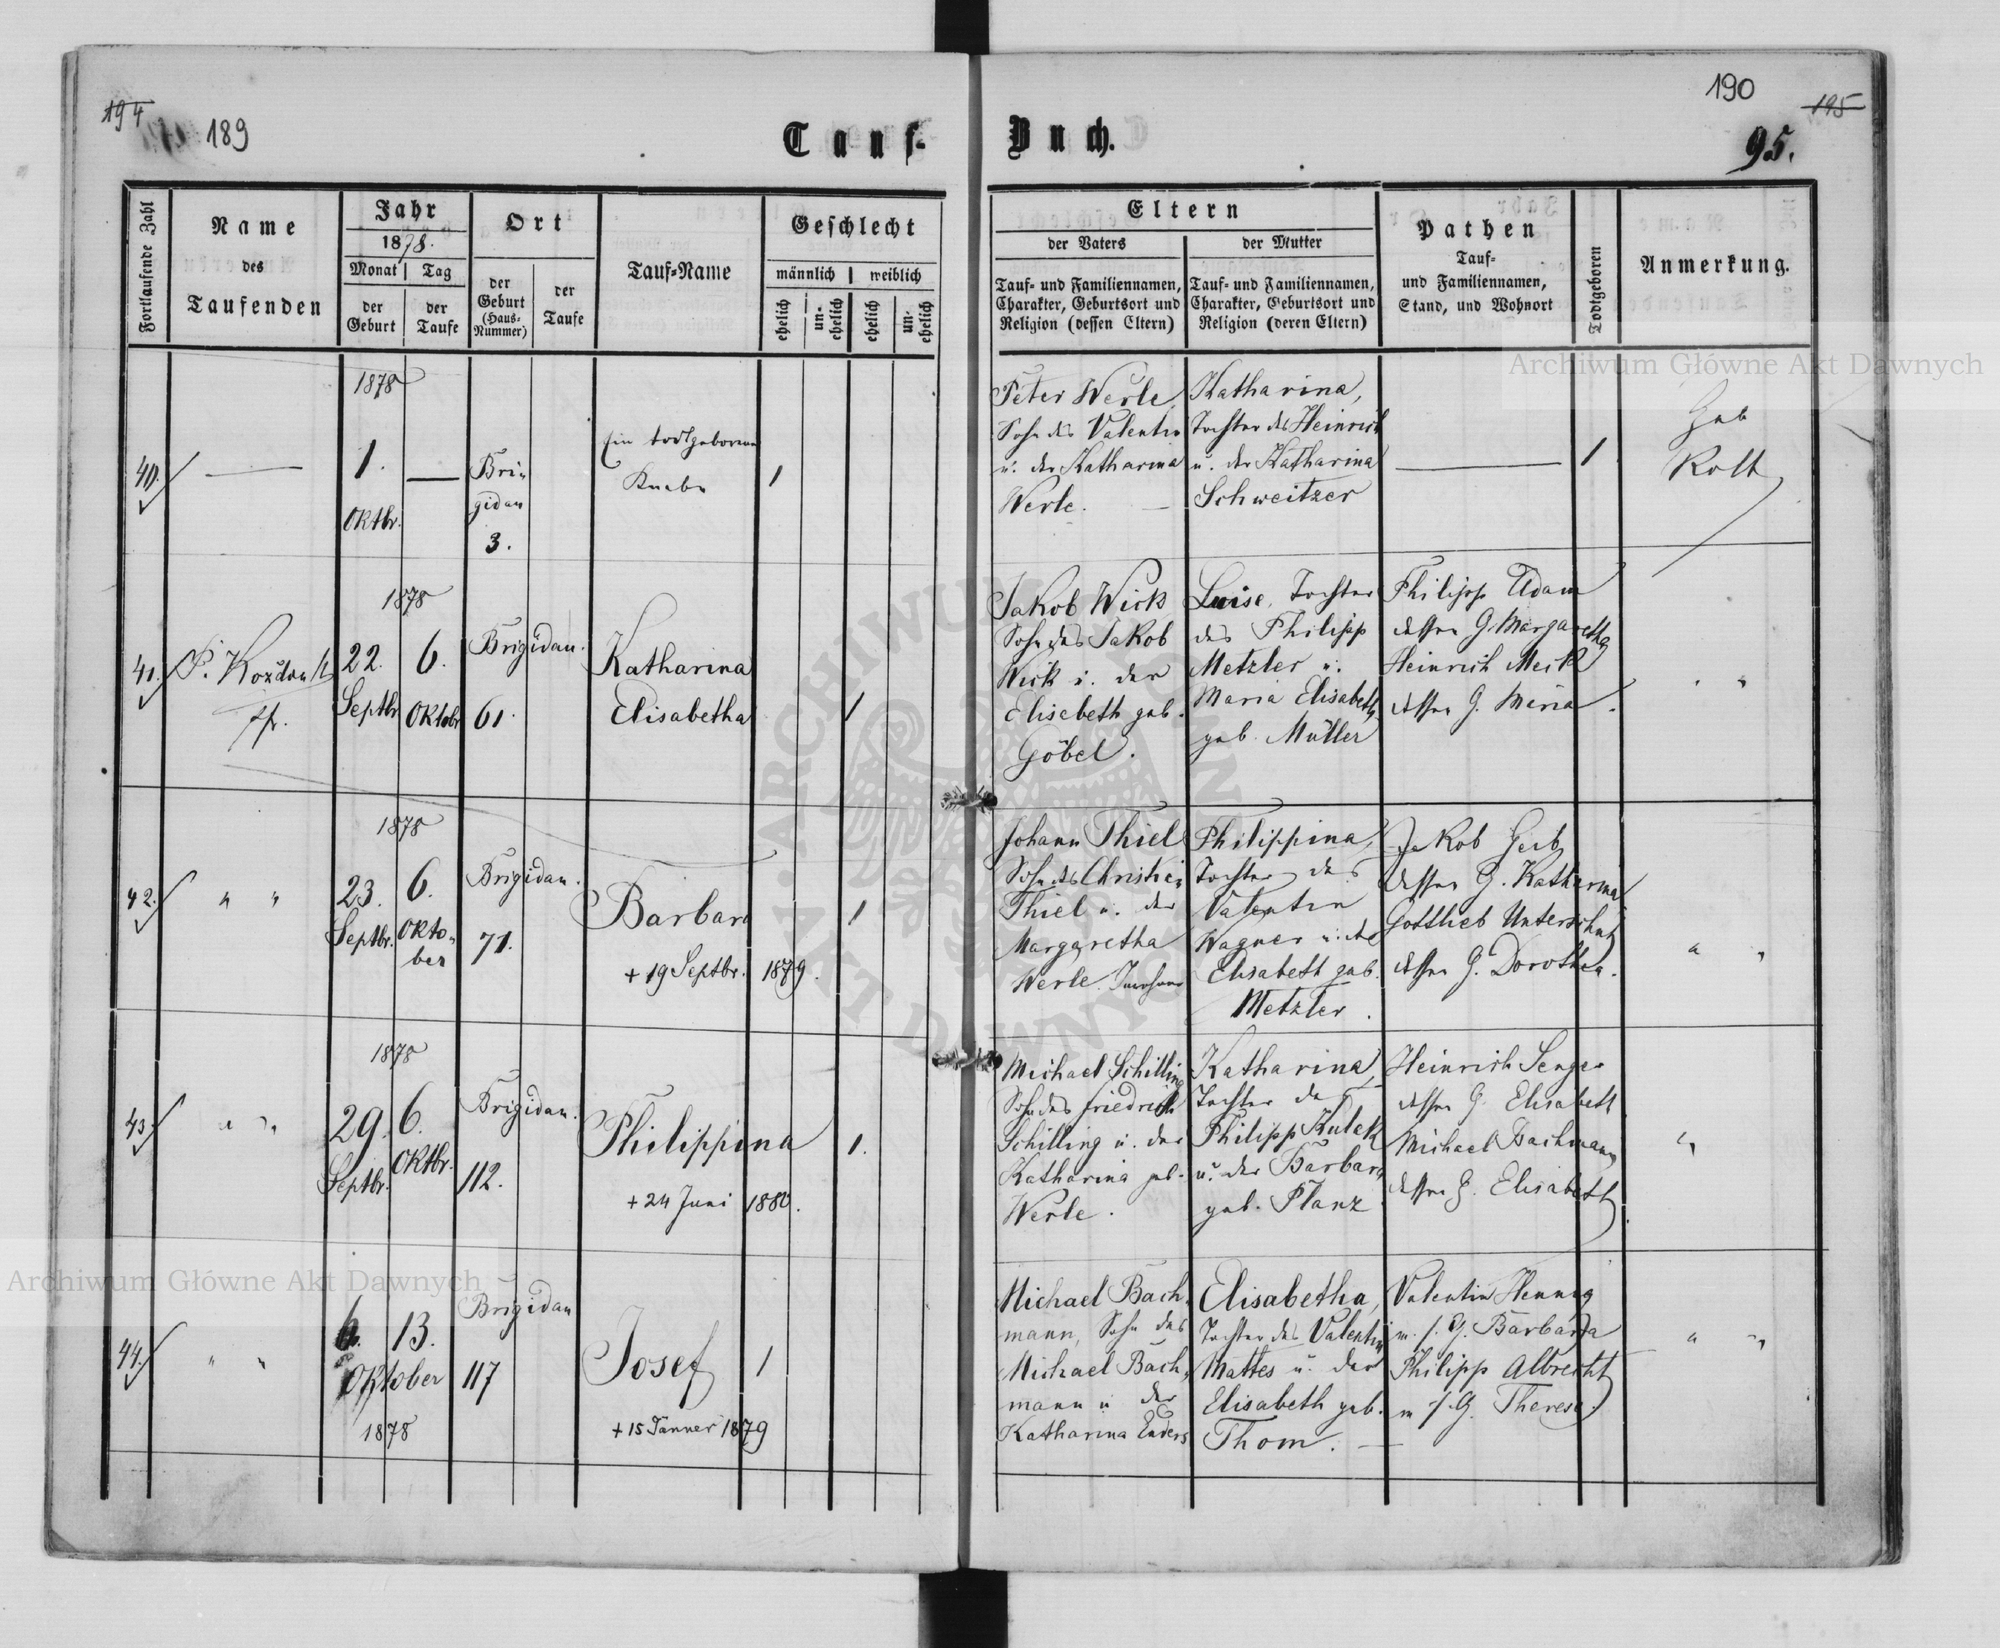 194
189
190
195
Tauf-
Buch.
95.
Fortlaufende Zahl
Name
des
Taufenden
Jahr
1878.
Monat
Tag
der
Geburt
der
Taufe
Ort
der
Geburt
(Haus-
Nummer)
der
Taufe
Tauf-Name
Geschlecht
männlich
weiblich
ehelich
un-
ehelich
ehelich
un-
ehelich
Eltern
der Vaters
der Mutter
Tauf- und Familiennamen,
Charakter, Geburtsort und
Religion (dessen Eltern)
Tauf- und Familiennamen,
Charakter, Geburtsort und
Religion (deren Eltern)
Pathen
Tauf-
und Familiennamen,
Stand, und Wohnort
Todtgeboren
Anmerkung.
Archiwum Główne Akt Dawnych
40.
1878
1.
Oktbr.
Bri
gidau
3.
Ein todtgeborener
Knabe
1
Peter Werle,
Sohn des Valentin
u. der Katharina
Werle.
Katharina,
Tochter des Heinrich
u. der Katharina
Schweitzer
1
Geb
Kolb
41.
1878
22.
Septbr
6.
Oktobr
Brigidau.
61.
Katharina
Elisabetha
1
Jakob Wick
Sohn des Jakob
Wick u. der
Elisabeth geb.
Göbel.
Luise, Tochter
des Philipp
Metzler u.
Maria Elisabeth
geb. Müller
Philipp Adam
dessen G. Margaretha
Heinrich Merk
dessen G. Maria.
" "
42.
" "
1878
23.
Septbr.
6.
Okto-
ber
Brigidau.
71.
Barbara
+ 19 Septbr. 1879.
1
Johann Thiel
Sohn des Christian
Thiel u. der
Margaretha
Werle.
Philippina,
Tochter des
Valentin
Wagner u. der
Elisabeth geb.
Metzler.
Jakob Geib
dessen G. Katharina
Gottlieb Unterschutz
dessen G. Dorothea.
" "
43.
" "
1878
29.
Septbr.
6.
Oktbr.
Brigidau.
112.
Philippina
+ 24 Juni 1880.
1.
Michael Schilling
Sohn des Friedrich
Schilling u. der
Katharina geb.
Werle.
Katharina,
Tochter des
Philipp Kulek
u. der Barbara
geb. Planz
Heinrich Senger
dessen G. Elisabeth
Michael Bachmann
dessen G. Elisabeth
"
44.
" "
6.
Oktober
13.
1878
Brigidau
117
Josef
+ 15 Jänner 1879
1
Michael Bach-
mann, Sohn des
Michael Bach-
mann u. der
Katharina Enders
Elisabetha,
Tochter des Valentin
Mattes u. der
Elisabeth geb.
Thom.
Valentin Hennig
m. s. G. Barbara
Philipp Albrecht
m s. G. Therese.
" "
Archiwum Główne Akt Dawnych
ARCHIWUM GŁÓWNE AKT DAWNYCH